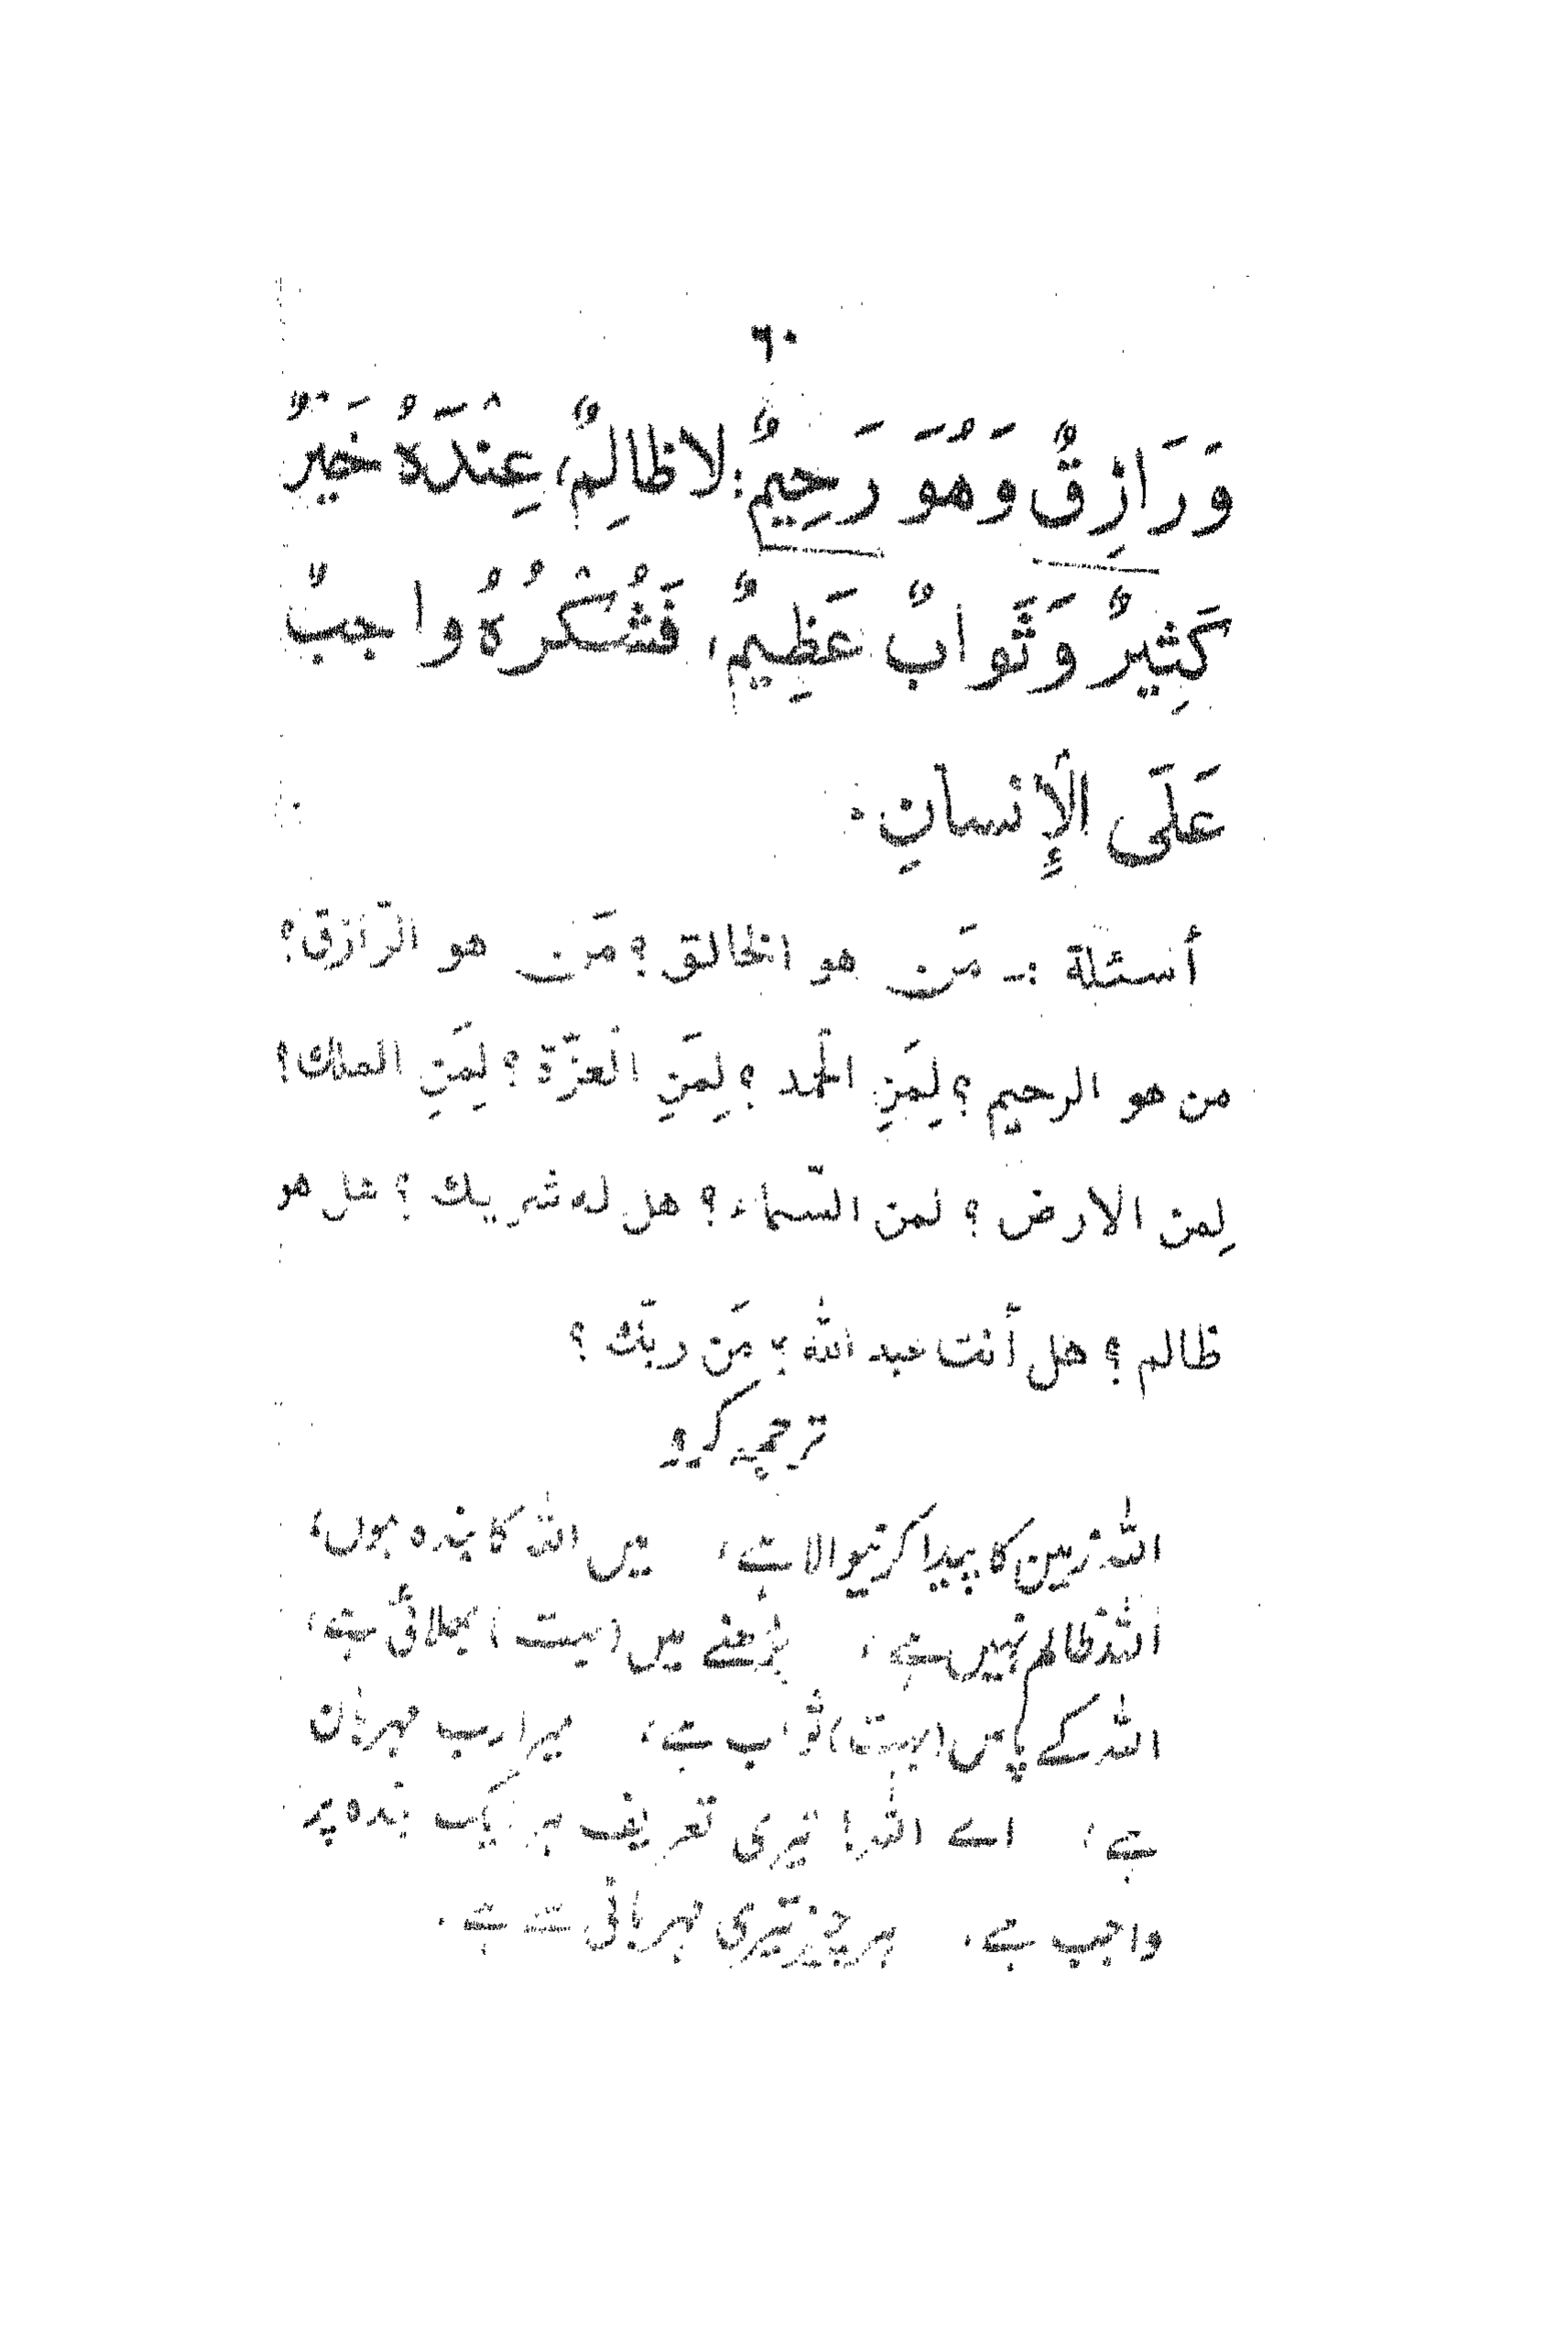 ٦٠
وَرَازِقٌ وَهُوَ رَحِيمٌ؛ لا ظالِمٌ، عِنْدَهُ خَيْرٌ
كَثِيرٌ وَثَوابٌ عَظِيمٌ، فَشُكْرُهُ واجبٌ
عَلَى الْإِنسانِ.
أسئلة :ـ مَن هو الخالق؟ مَن هو الرّازق؟
من هو الرحيم؟ لِمَنِ الْحمد؟ لِمَنِ الْعزّة؟ لِمَنِ الملك؟
لِمن الارض؟ لمن السّماء؟ هل له شريك؟ هل هو
ظالم؟ هل أنت عبد الله؟ مَن ربّك؟
ترجمہ کرو
اللہ زمین کا پیدا کرنیوالا ہے، میں اللہ کا بندہ ہوں،
اللہ ظالم نہیں ہے، پڑھنے میں (بہت) بھلائی ہے،
اللہ کے پاس (بہت) ثواب ہے، میرا رب مہربان
ہے، اے اللہ! تیری تعریف ہر یک بندہ پر
واجب ہے. ہر چیز تیری مہربانی سے ہے.